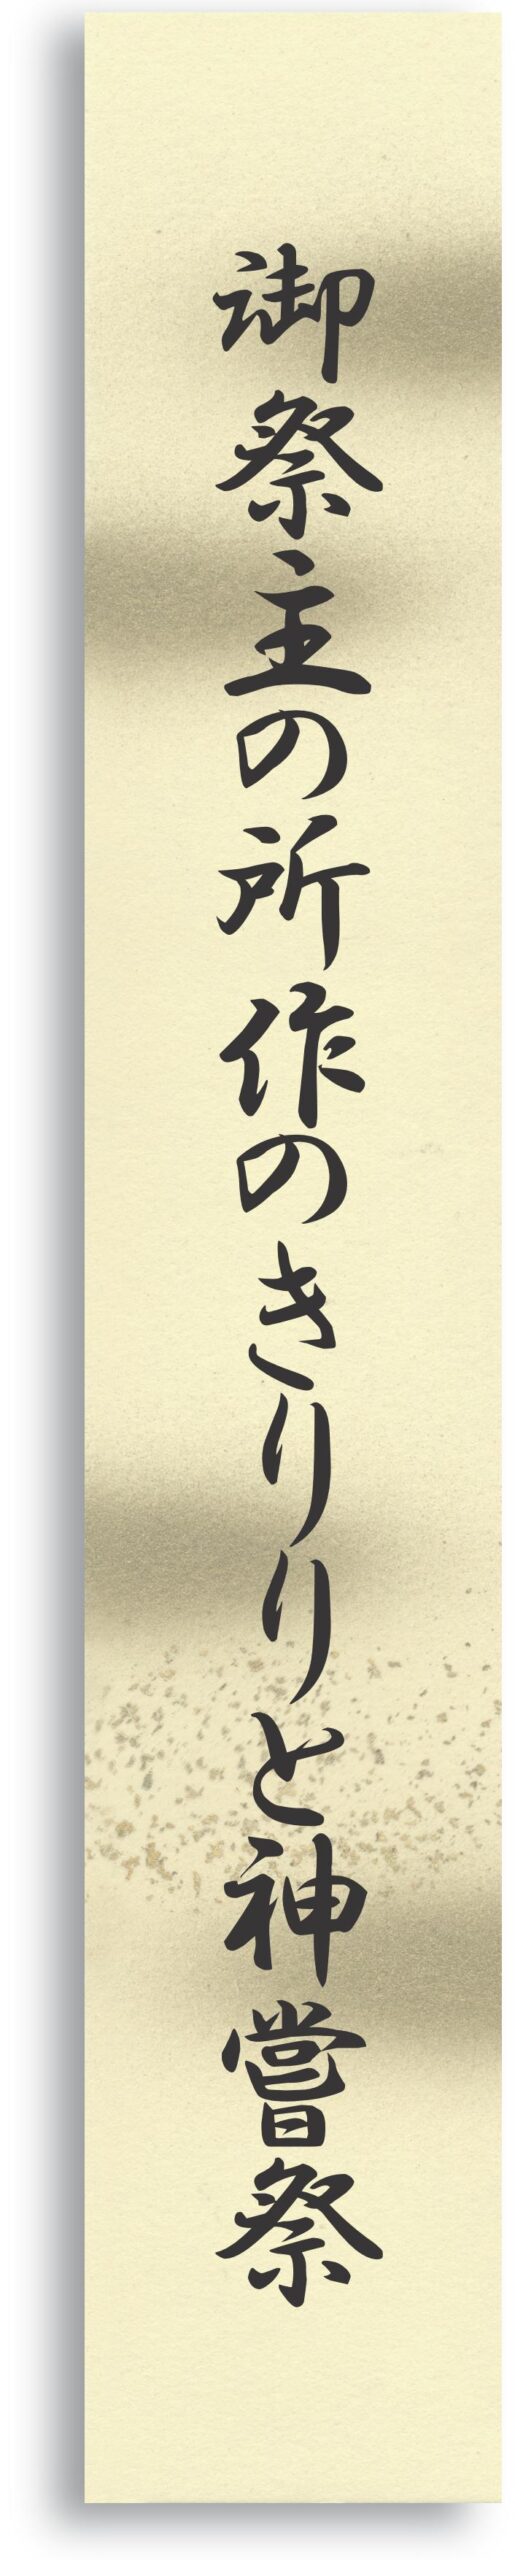 御祭主の所作のきりりと神嘗祭